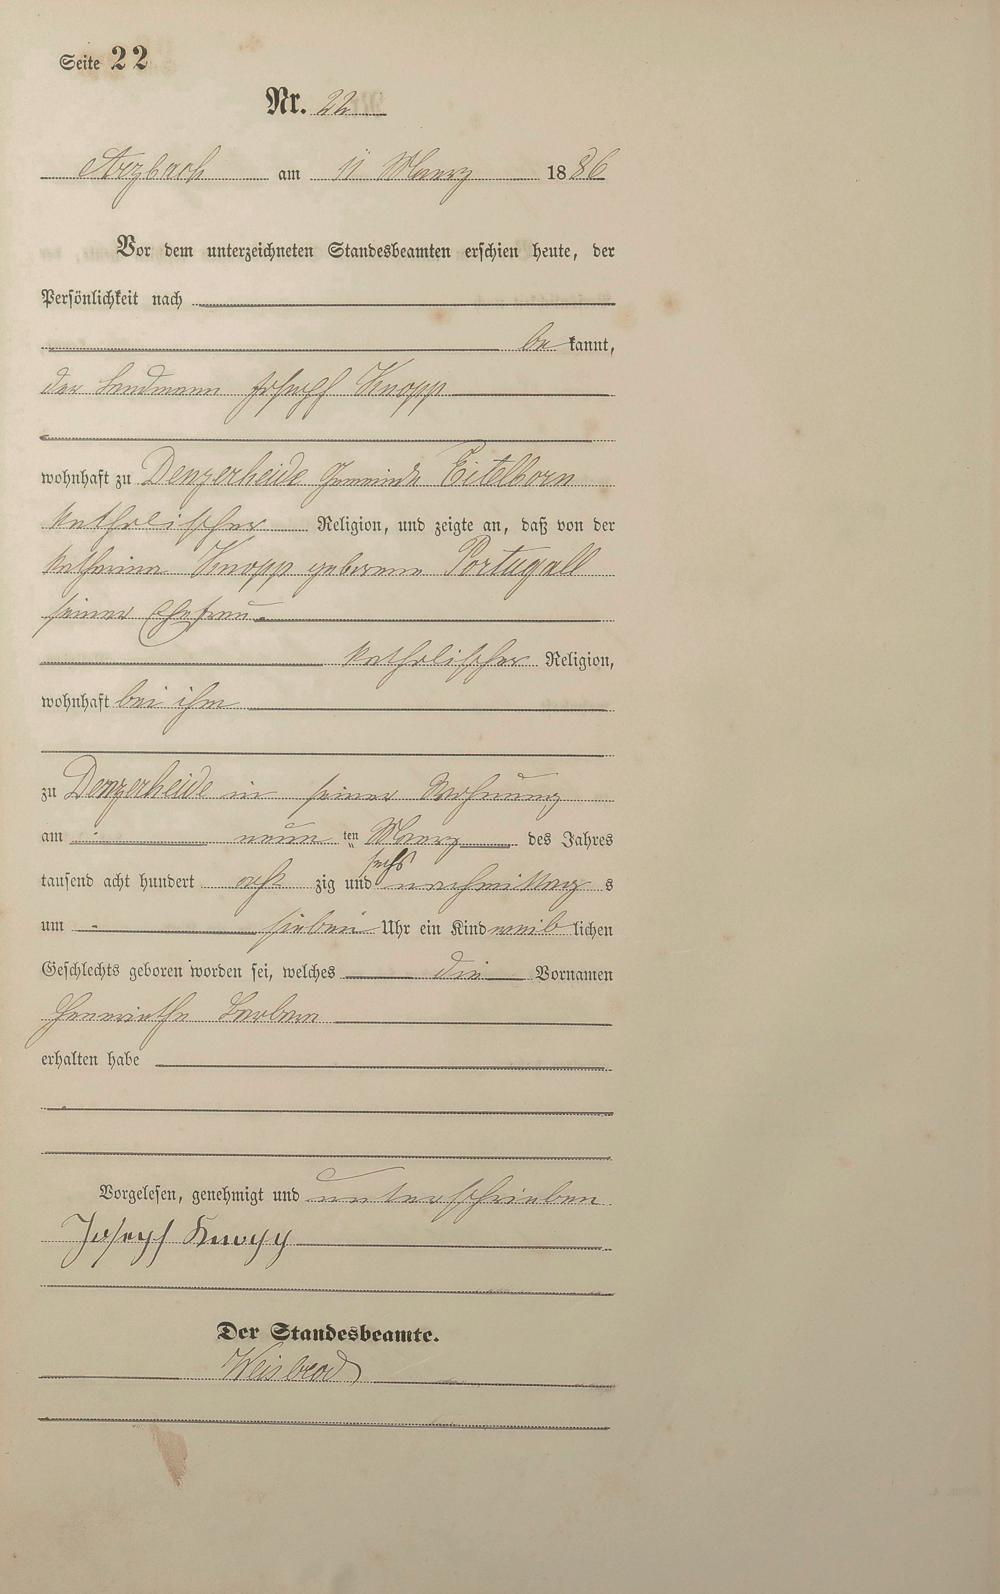 Seite 22
Nr. 22
Arzbach am 11 Maerz 1886
Vor dem unterzeichneten Standesbeamten erschien heute, der
Persönlichkeit nach
be kannt,
der Landmann Joseph Knopp
wohnhaft zu Denzerheide Gemeinde Eitelborn
katholischer Religion, und zeigte an, daß von der
Katharina Knopp geborene Portugall
seiner Ehefrau
katholischer Religion,
wohnhaft bei ihm
zu Denzerheide in seiner Wohnung
am neun ten Maerz des Jahres
tausend acht hundert acht zig und sechs nachmittag s
um sieben Uhr ein Kind weib lichen
Geschlechts geboren worden sei, welches die Vornamen
Henriethe Barbara
erhalten habe
Vorgelesen, genehmigt und unterschrieben
Joseph Knopp
Der Standesbeamte.
Weisbrod